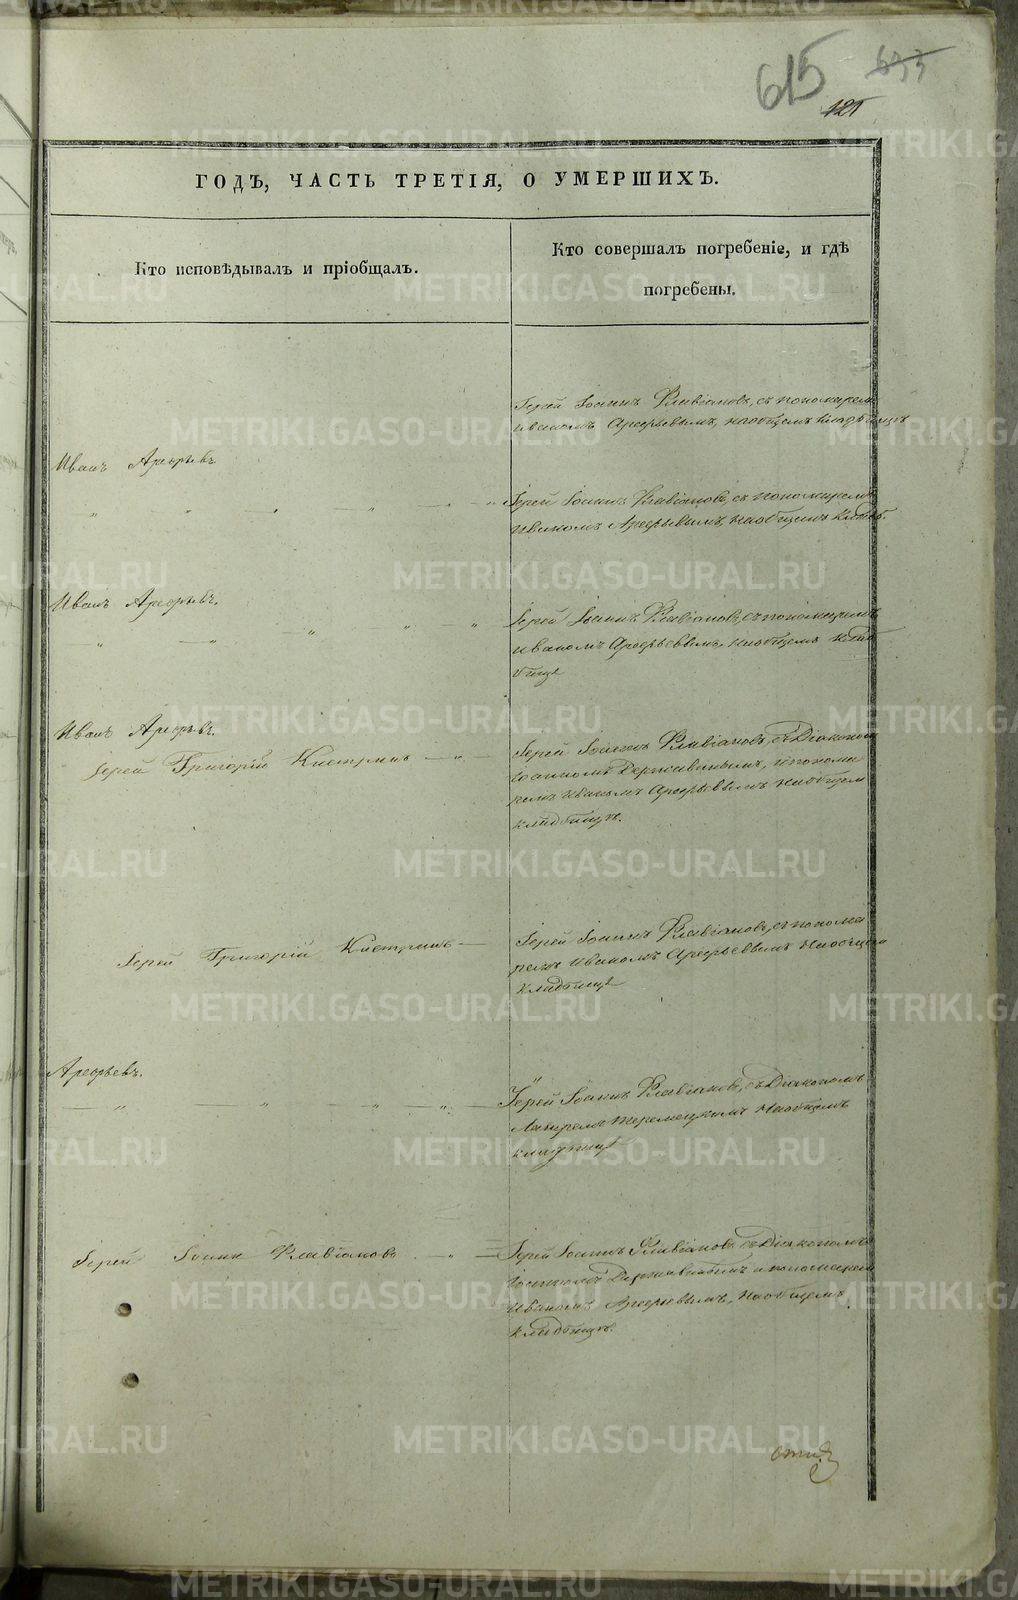 615 633
121
ГОДЪ, ЧАСТЬ ТРЕТІЯ, О УМЕРШИХЪ.
Кто исповѣдывалъ и пріобщалъ.
Кто совершалъ погребеніе, и гдѣ
погребены.
Іерей Іоаннъ Флавіановъ, съ пономаремъ
Иваномъ Арефьевымъ, на общемъ кладбищѣ
Иванъ Арефьевъ
Іерей Іоаннъ Флавіановъ, съ пономаремъ
Иваномъ Арефьевымъ, на общемъ кладб.
Иванъ Арефьевъ.
Іерей Іоаннъ Флавіановъ, съ пономаремъ
Иваномъ Арефьевымъ, на общемъ клад
бищѣ
Иванъ Арефьевъ.
Іерей Григорій
Іерей Іоаннъ Флавіановъ, съ Діакономъ
Іоанномъ Державинымъ, и понома
ремъ Иваномъ Арефьевымъ на общемъ
кладбищѣ.
Іерей Григорій
Іерей Іоаннъ Флавіановъ, съ понома
ремъ Иваномъ Арефьевымъ на общемъ
кладбищѣ
Арефьевъ.
Іерей Іоаннъ Флавіановъ, съ Діакономъ
на общемъ
кладбищѣ
Іерей Іоанн Флавіановъ
Іерей Іоаннъ Флавіановъ съ Діакономъ
Іоанномъ Державинымъ и пономаремъ
Иваномъ Арефьевымъ, на общемъ
кладбищѣ.
METRIKI.GASO-URAL.RU